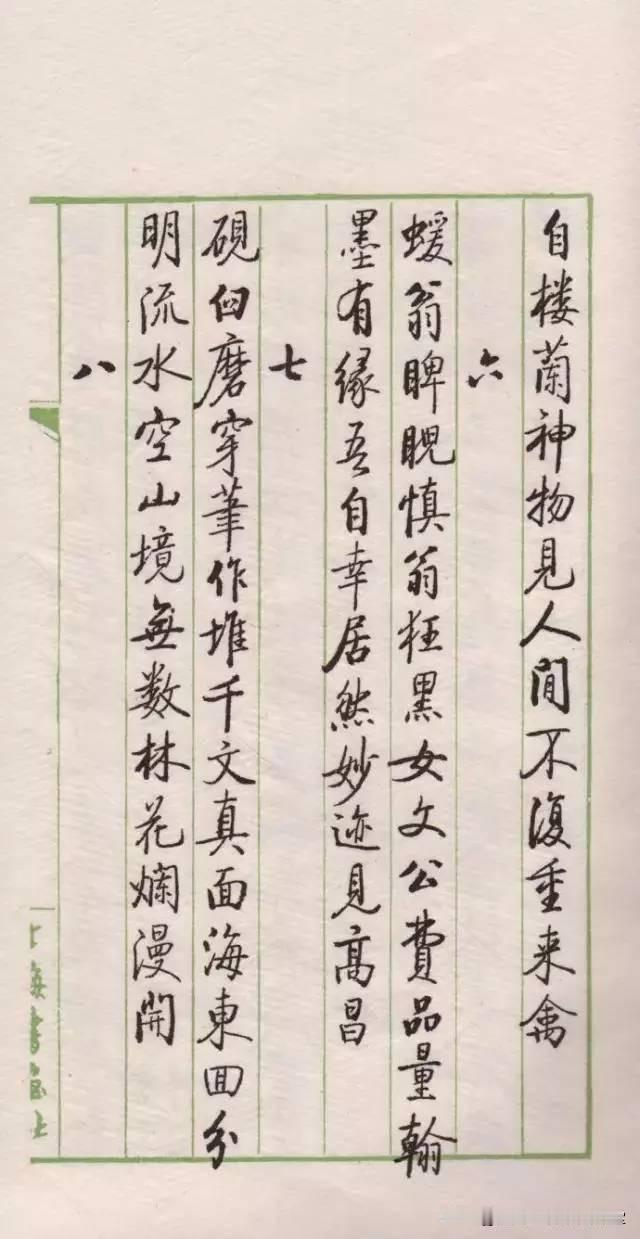 自楼蘭神物見人間不復重来禽
六
蝯翁睥睨慎翁狂黑女文公費品量翰
墨有緣吾自幸居然妙迹見高昌
七
硯臼磨穿筆作堆千文真面海東回分
明流水空山境無数林花爛漫開
八
上海書画社